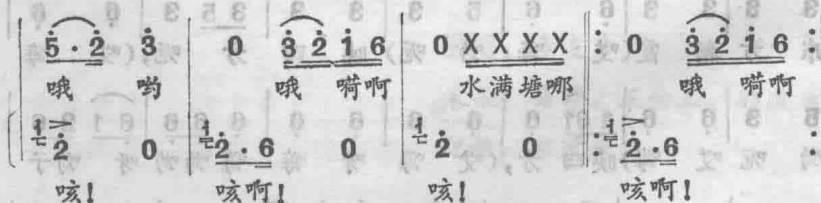 5·2 3 | 0 3 2 1 6 | 0 X X X X ‖: 0 3 2 1 6 :
哦 哟 哦 嗬啊 水满塘哪 哦 嗬啊
1 2 0 | 1 2·6 0 | 1 2 0 ‖: 1 2·6 0 :
咳! 咳啊! 咳! 咳啊!